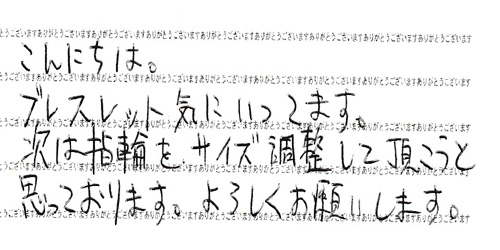 こんにちは。
ブレスレット気にいってます。
次は指輪をサイズ調整して頂こうと
思っております。よろしくお願いします。